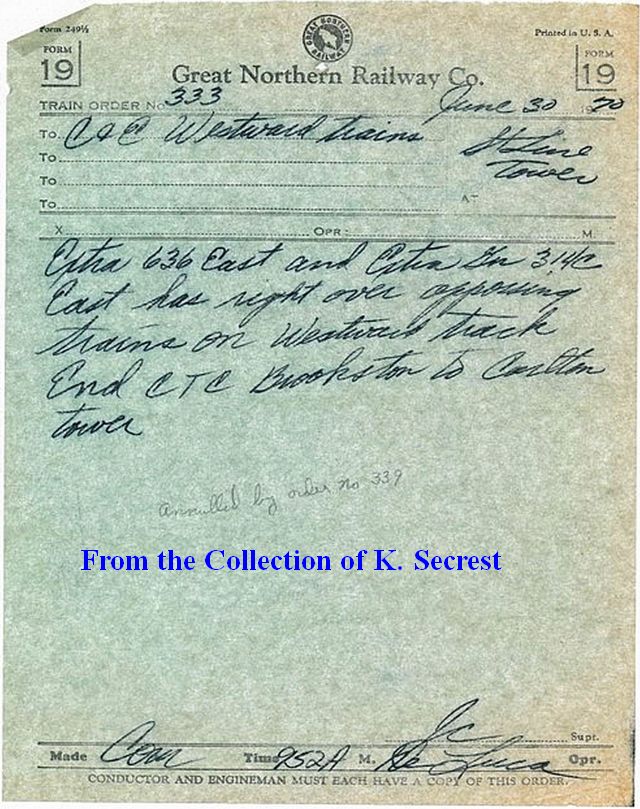 Form 249½
Printed in U. S. A.
GREAT NORTHERN RAILWAY
FORM 19
FORM 19
Great Northern Railway Co.
TRAIN ORDER No. 333 June 30 1970
To C&E Westward trains St Line
To Tower
To
To AT
X OPR. M.
Extra 636 East and Extra Gn 314C
East has right over opposing
trains on Westward track
End CTC Brookston to Carlton
tower
annulled by order no 339
From the Collection of K. Secrest
JC Supt.
Made Com Time 952A M. De Luca Opr.
CONDUCTOR AND ENGINEMAN MUST EACH HAVE A COPY OF THIS ORDER.